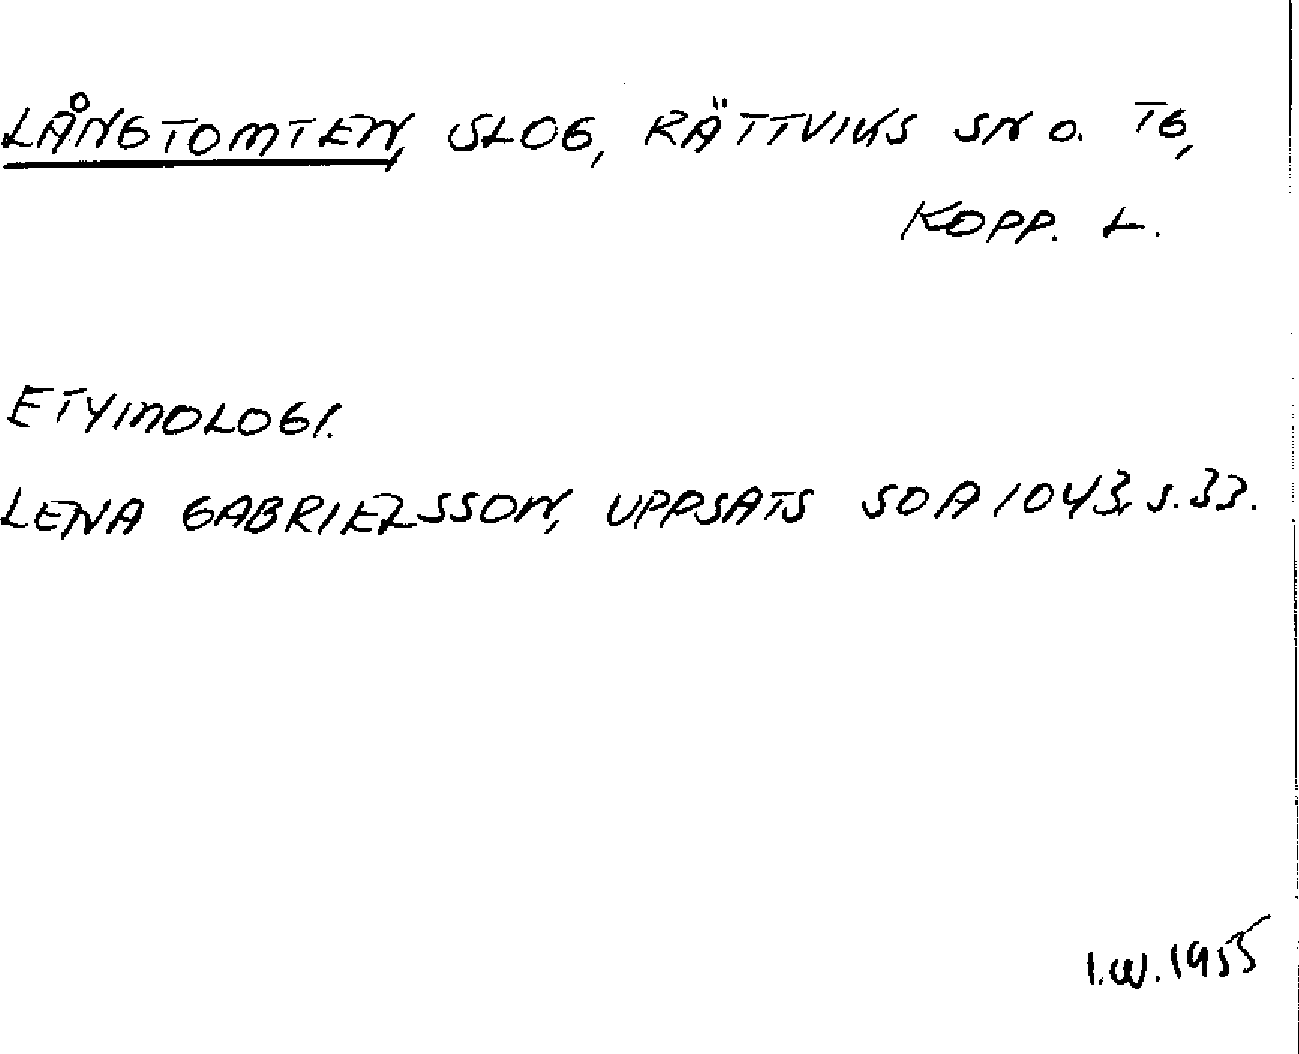 LÅNGTOMTEN, SLOG, RÄTTVIKS SN O. TG,
KOPP. L.
ETYMOLOGI.
LENA GABRIELSSON, UPPSATS SOA 1043, S. 33.
I.W. 1955